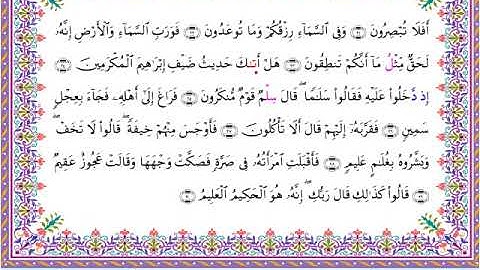 أَفَلَا تُبْصِرُونَ ۝ وَفِي ٱلسَّمَآءِ رِزْقُكُمْ وَمَا تُوعَدُونَ ۝ فَوَرَبِّ ٱلسَّمَآءِ وَٱلْأَرْضِ إِنَّهُۥ
لَحَقٌّ مِّثْلُ مَآ أَنَّكُمْ تَنطِقُونَ ۝ هَلْ أَتَىٰكَ حَدِيثُ ضَيْفِ إِبْرَٰهِيمَ ٱلْمُكْرَمِينَ ۝
إِذ دَّخَلُوا۟ عَلَيْهِ فَقَالُوا۟ سَلَٰمًا ۖ قَالَ سِلْمٌ قَوْمٌ مُّنكَرُونَ ۝ فَرَاغَ إِلَىٰٓ أَهْلِهِۦ فَجَآءَ بِعِجْلٍ
سَمِينٍ ۝ فَقَرَّبَهُۥٓ إِلَيْهِمْ قَالَ أَلَا تَأْكُلُونَ ۝ فَأَوْجَسَ مِنْهُمْ خِيفَةً ۖ قَالُوا۟ لَا تَخَفْ ۖ
وَبَشَّرُوهُ بِغُلَٰمٍ عَلِيمٍ ۝ فَأَقْبَلَتِ ٱمْرَأَتُهُۥ فِي صَرَّةٍ فَصَكَّتْ وَجْهَهَا وَقَالَتْ عَجُوزٌ عَقِيمٌ
۝ قَالُوا۟ كَذَٰلِكِ قَالَ رَبُّكِ ۖ إِنَّهُۥ هُوَ ٱلْحَكِيمُ ٱلْعَلِيمُ ۝